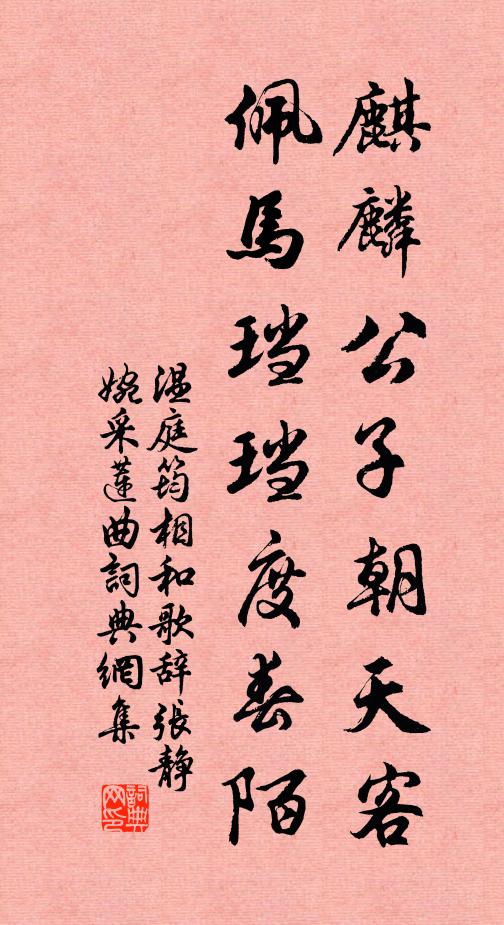 麒麟公子朝天客
佩馬珰珰度春陌
温庭筠相和歌辞張静
婉采蓮曲詞典網集
詞典
网印